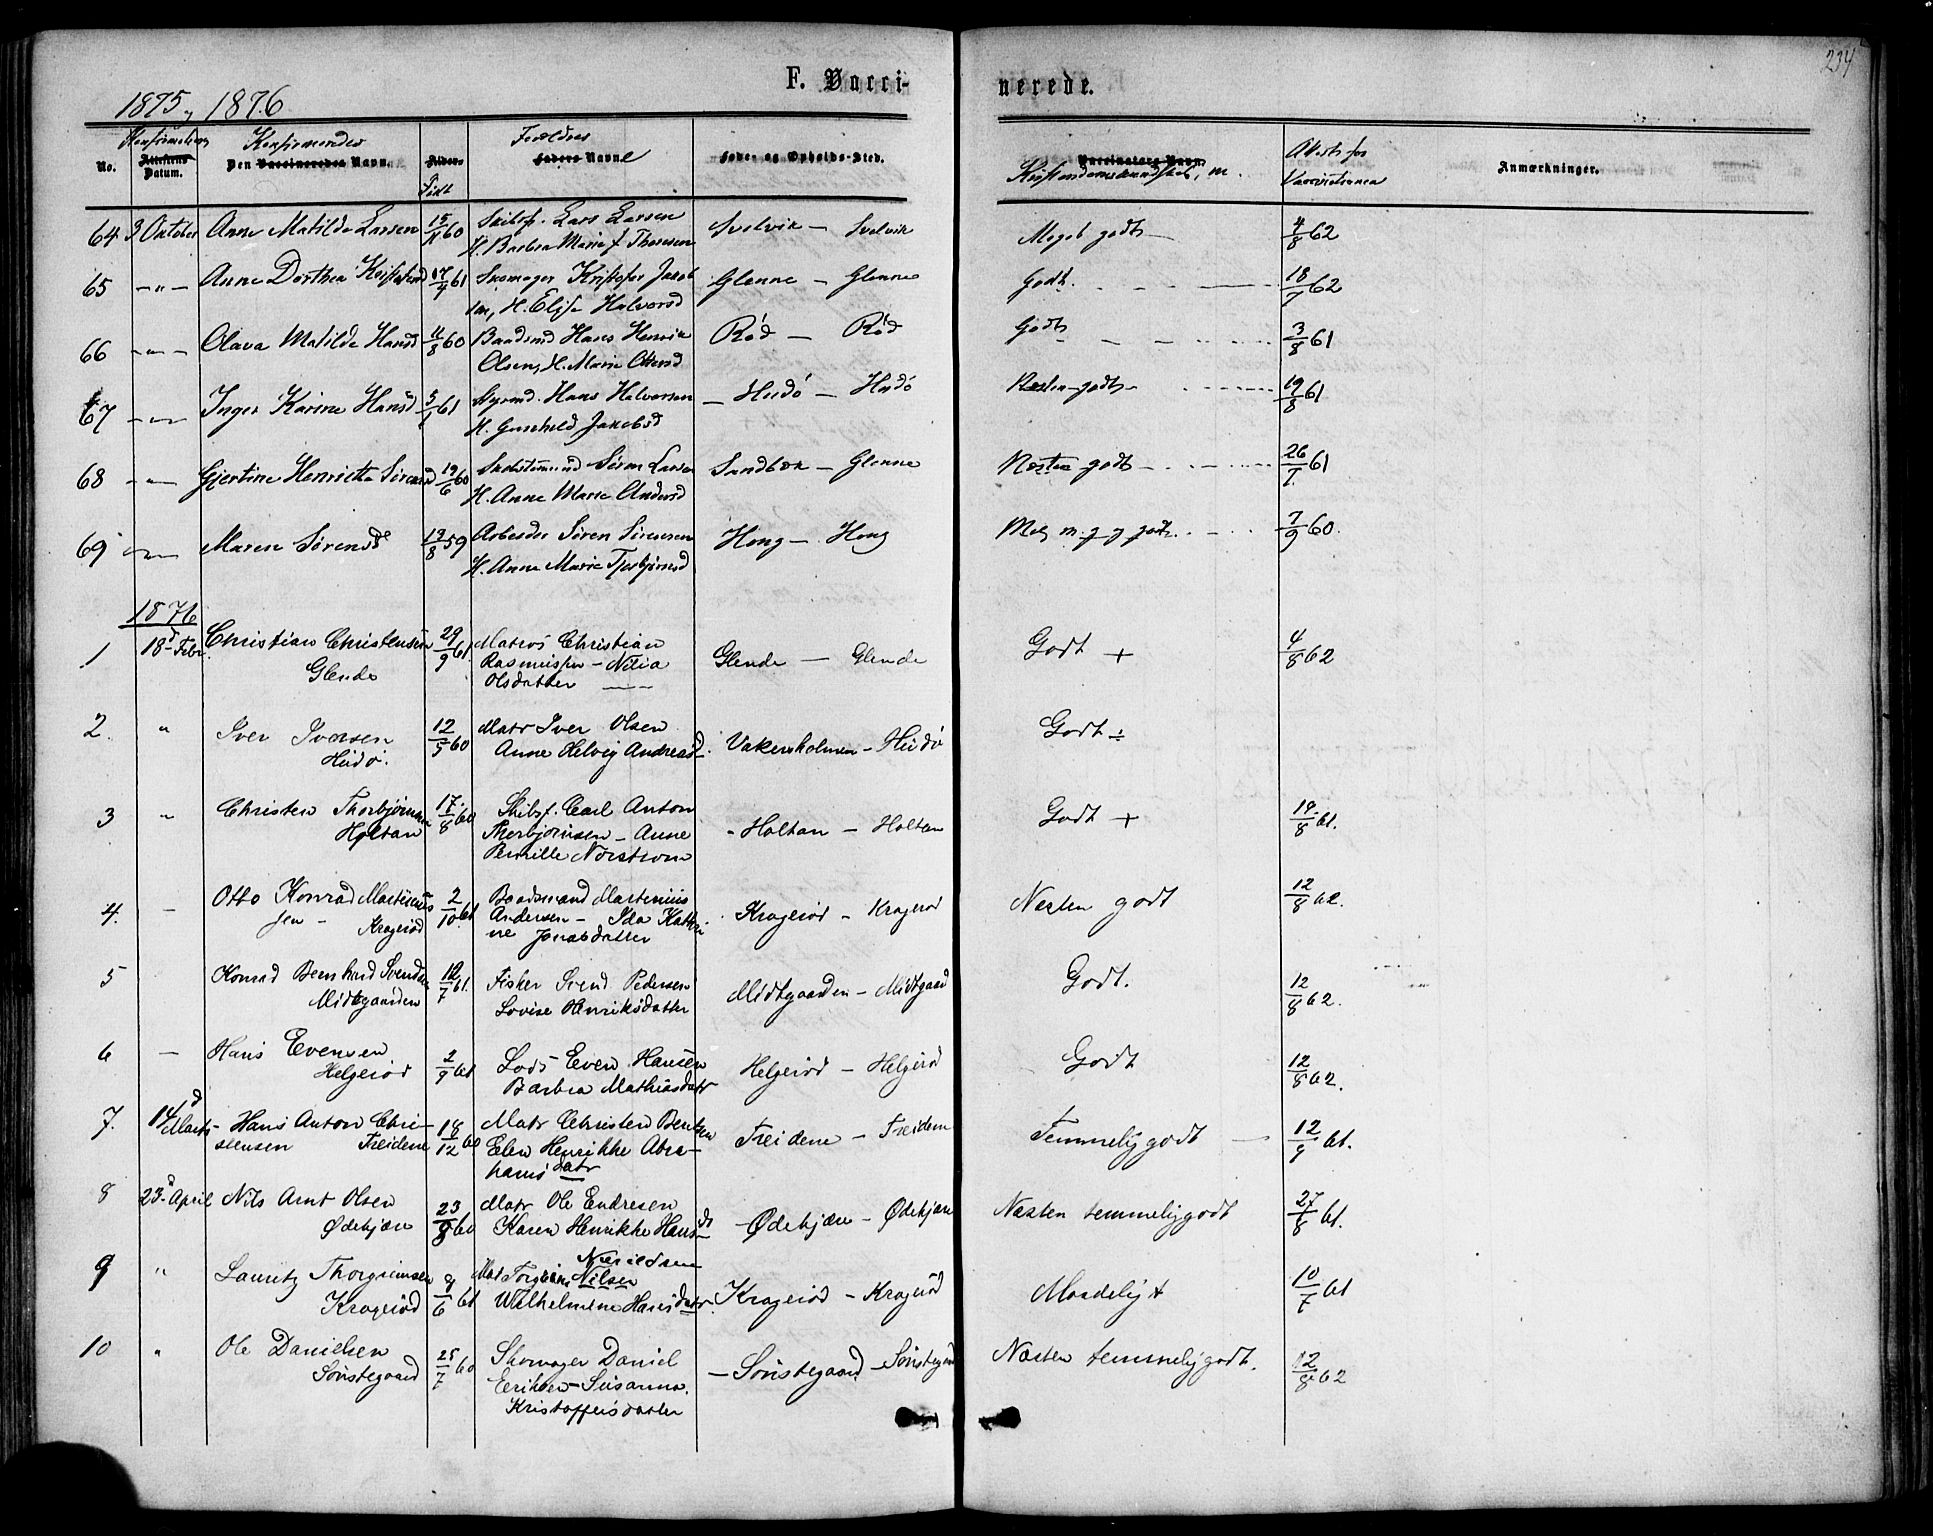 234
F. Vacci-nerede.
1875, 1876
No. Attestens Datum. Den Vaccineredes Navn. Alder. Faders Navn Føde- og Opholds-Sted. Vaccinators Navn. Anmærkninger.
Konfirmandes Forældres Født Kristendomskundskab, m. Attest for Vaccinationen
64 3 Oktober Anne Matilde Larsen 15/11 60 Skibsf. Lars Larsen Svelvik — Svelvik Meget godt 4/8 62
H. Barbra Marie f Thoresen
65 -"- Anne Dorthea Kristofersd 17/4 61 Skomager Kristofer Jakob Glenne — Glenne Godt. 18/7 62
sen, H. Elise Halvorsd
66 -"- Olava Matilde Hansd 11/8 60 Baadsmd Hans Henrik Rød — Rød Godt 3/8 61
Olsen, H. Marie Ottersd
67 -"- Inger Karine Hansd 5/1 61 Styrmd. Hans Halvorsen — Hudø — Hudø Næsten godt 19/8 61
H. Gunhild Jakobsd
68 -"- Gjertine Henriette Sørensd 19/6 60 Søren Larsen Sandbæk — Glenne Næsten godt 26/7 61
H. Anne Marie Andersd
69 -"- Maren Sørensd 19/8 59 Arbeider Søren Sørensen Houg — Houg 7/9 60.
H. Anne Marie Torbjørnsd
1876
1 18d Febr. Christian Christensen 29/9 61. Matros Christian Glende — Glende Godt + 4/8 62
Glende Rasmussen — Nilia
Olsdatter —
2. " Iver Iversen 12/5 60 Matr Iver Olsen Vakersholmen — Hudø Godt ÷
Hudø. Anne Helvig Andreasd
3 " Christen Thorbjørnsen 17/8 60 Skibsf. Carl Anton - Holtan — Holtan Godt + 19/8 61.
Holtan Thorbjørnsen — Anne
Pernille Nordstrom
4. — Otto Konrad Martinius 2/10 61 Baadsmand Martinius Kragerød — Kragerød Næsten godt 12/8 62.
sen - Kragerød Andersen — Ida Kathri
ne Jonasdatter
5 Konrad Bernhard Svendsen 12/7 61. Fisker Svend Pedersen Midtgaarden — Midtgaard Godt. 12/8 62.
Midtgaarden Lovise Henriksdatter
6 — Hans Evensen 2/9 61 Lods Even Hansen Helgerød — Helgerød Godt 12/8 62.
Helgerød Barbra Mathiasdatr
7. 14d Marts - Hans Anton Chri- 18/12 60 Matr Christen Bentsen Treidene — Treidene Temmelig godt — 12/9 61.
stensen Treidene Elen Henrikke Abra-
hams datr
8 23d April Nils Arnt Olsen 23/8 60 Matr Ole Endresen — Ødekjær — Ødekjær Næsten temmelig godt 27/8 61.
Ødekjær Karen Henrikke Hansd
9 " Lauritz Thorgrimsen 9/6 61 Mat Torgrim Nilsen Kragerød — Kragerød Maadeligt 10/7 61
Kragerød Wilhelmine Hansdatr.
10 " Ole Danielsen 25/7 60 Skomager Daniel — Sønstegaard — Sønstegaard Næsten temmelig godt. 12/8 62
Sønstegaard Eriksen — Susanna
Kristoffersdatter